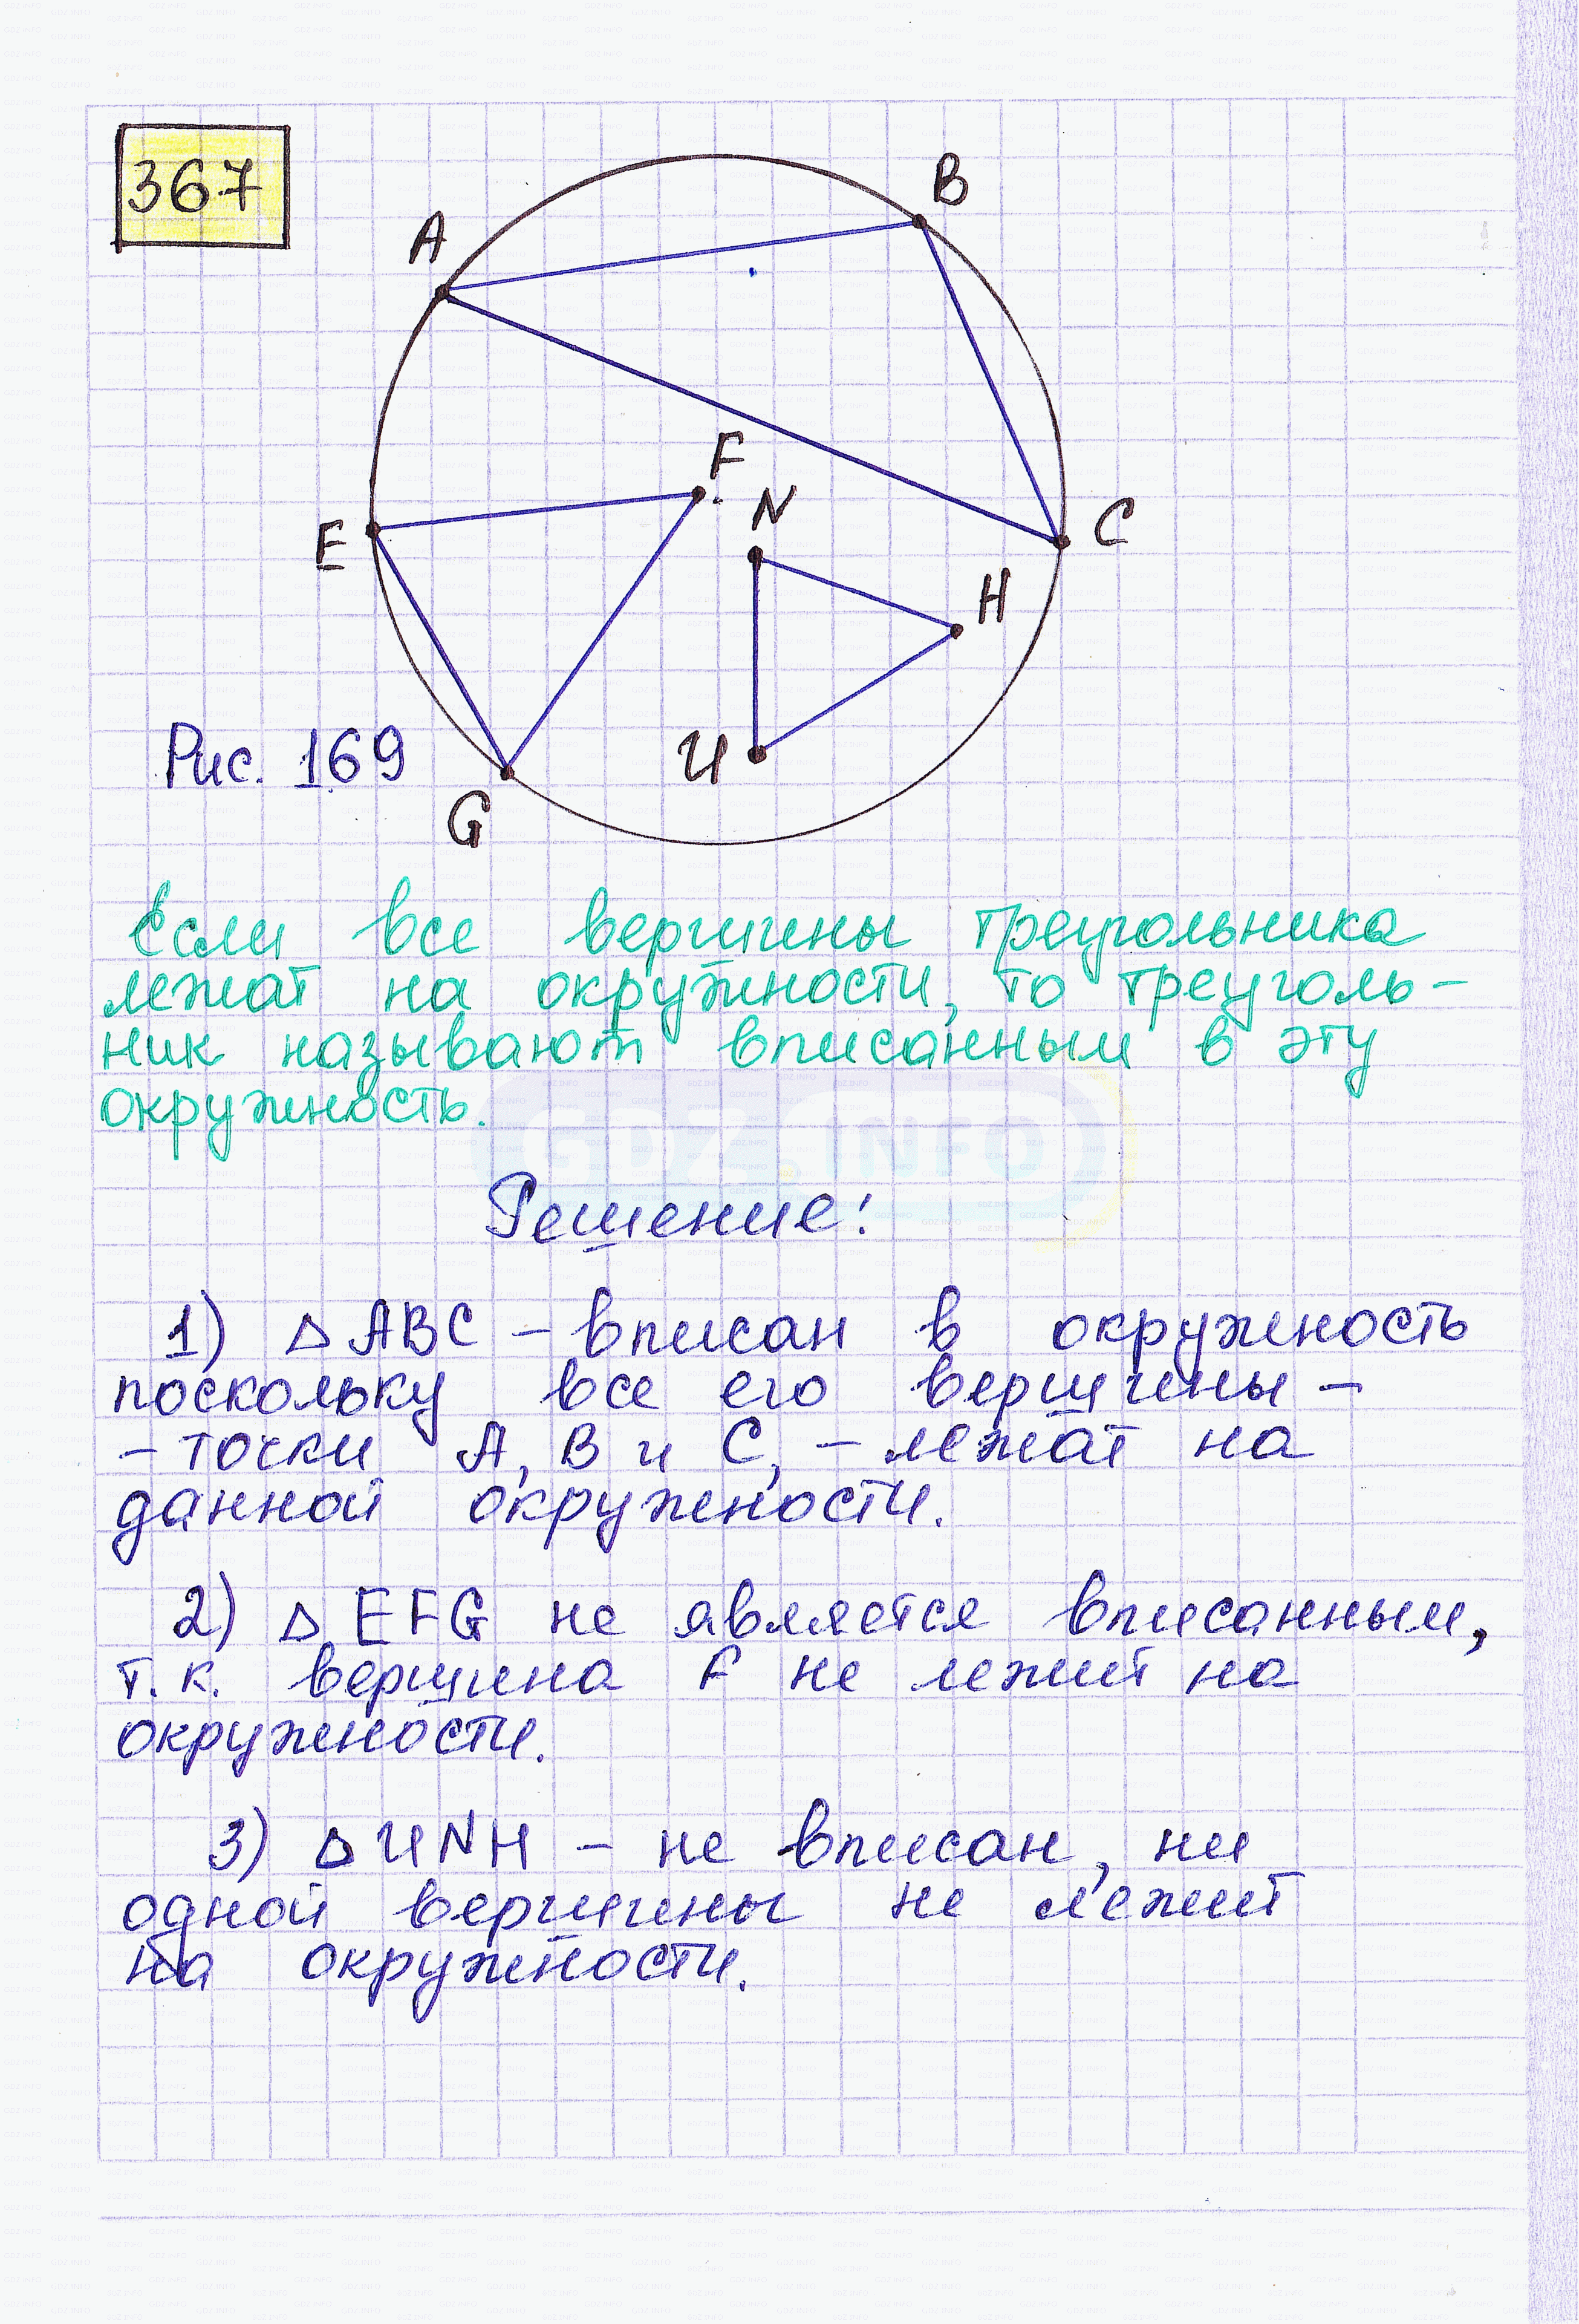 367
A
B
F
N
E
C
H
Рис. 169
И
G
Если все вершины треугольника
лежат на окружности, то треуголь-
ник называют вписанным в эту
окружность.
GDZ.INFO
Решение:
1) △ ABC – вписан в окружность
поскольку все его вершины –
– точки A, B и C, – лежат на
данной окружности.
2) △ EFG не является вписанным,
т.к. вершина F не лежит на
окружности.
3) △ИNH – не вписан, ни
одной вершины не лежит
на окружности.